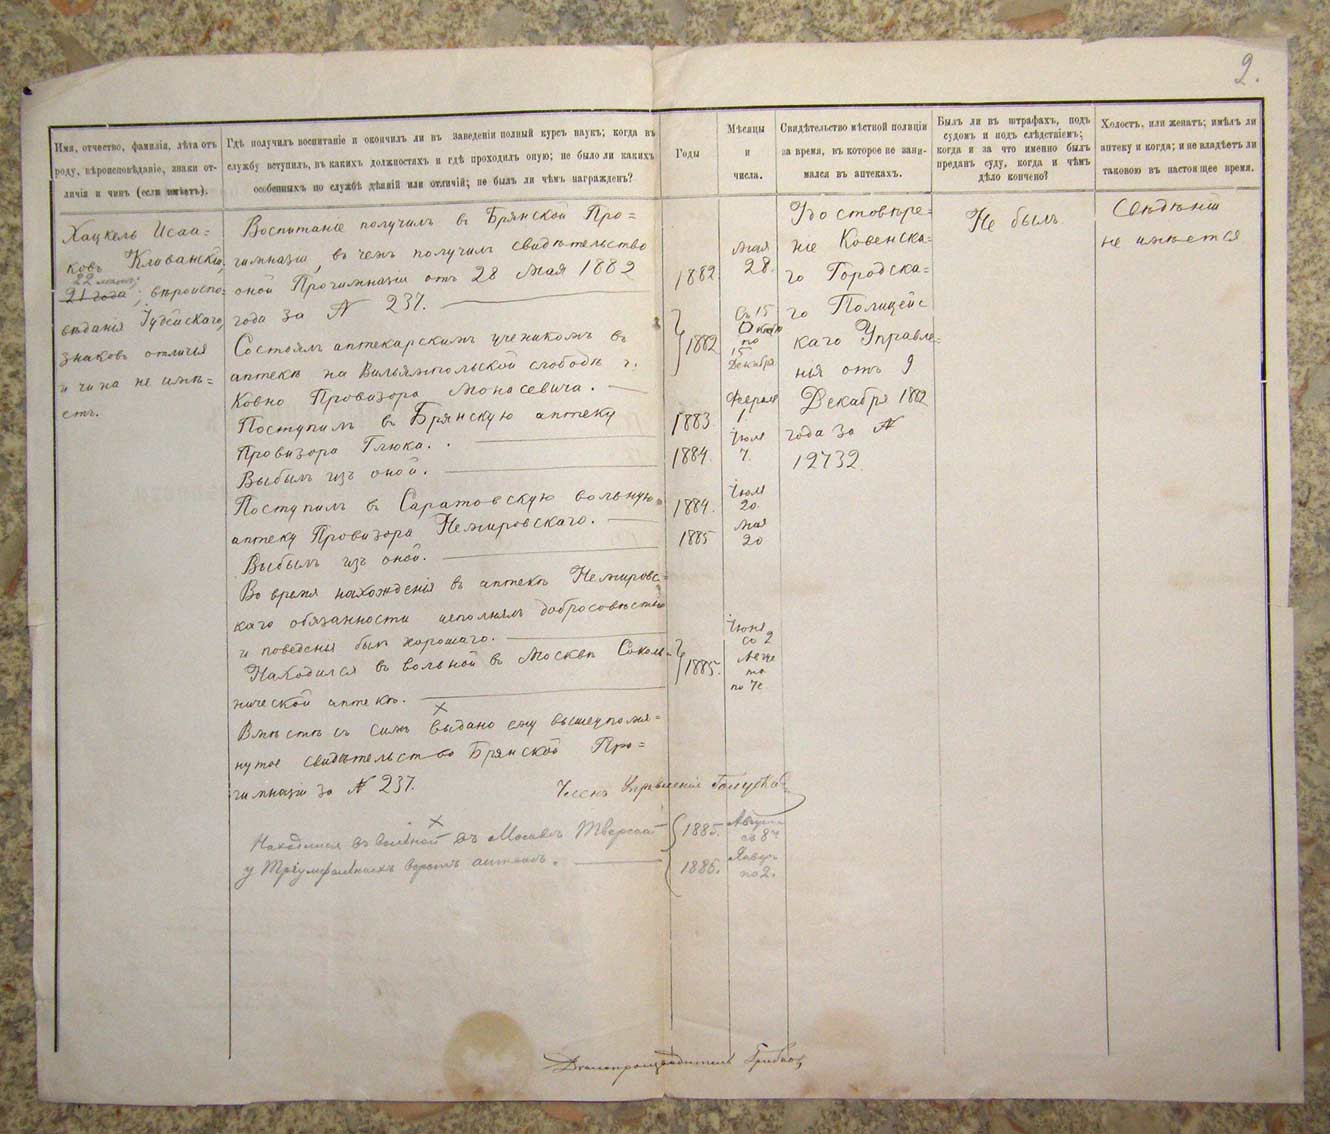 2.
Имя, отчество, фамилія, лѣта отъ
роду, вѣроисповѣданіе, знаки от-
личія и чинъ (если имѣетъ).
Гдѣ получилъ воспитаніе и окончилъ ли въ заведеніи полный курсъ наукъ; когда въ
службу вступилъ, въ какихъ должностяхъ и гдѣ проходилъ оную; не было ли какихъ
особенныхъ по службѣ дѣяній или отличій; не былъ ли чѣмъ награжденъ?
Годы
Мѣсяцы
и
числа.
Свидѣтельство мѣстной полиціи
за время, въ которое не зани-
мался въ аптекахъ.
Былъ ли въ штрафахъ, подъ
судомъ и подъ слѣдствіемъ;
когда и за что именно былъ
преданъ суду, когда и чѣмъ
дѣло кончено?
Холостъ, или женатъ; имѣлъ ли
аптеку и когда; и не владѣетъ ли
таковою въ настоящее время.
Хацкель Исаа-
ковъ Клованскій,
22 лѣтъ;
21 года; вѣроиспо-
вѣданія Іудейскаго,
знаковъ отличія
и чина не имѣ-
етъ.
Воспитаніе получилъ въ Брянской Про=
гимназіи, въ чемъ получилъ свидѣтельство
оной Прогимназіи отъ 28 Мая 1882
года за № 237.
Состоялъ аптекарскимъ ученикомъ въ
аптекѣ на Вильямпольской слободѣ г.
Ковно Провизора Монасевича.
Поступилъ въ Брянскую аптеку
Провизора Глюка.
Выбылъ изъ оной.
Поступилъ въ Саратовскую вольную
аптеку Провизора Немировскаго.
Выбылъ изъ оной.
Во время нахожденія въ аптекѣ Немировс=
каго обязанности исполнялъ добросовѣстно
и поведенія былъ хорошаго.
Находился въ вольной въ Москвѣ Соколь-
нической аптекѣ.
×
Вмѣстѣ съ симъ выдано ему вышеупомя=
нутое свидѣтельство Брянской Про=
гимназіи за № 237.
Членъ Управленія
×
Находился въ вольной въ Москвѣ Тверской
у Тріумфальныхъ воротъ аптекѣ.
1882
1882
1883.
1884.
1884.
1885
1885.
1885.
1886.
Мая
28.
Съ 15
по
15
Декабря.
Февраля
1.
Іюля
7.
Іюля
20.
Мая
20
Іюня
со 2
по
Августа
съ 8
Январь
по 2.
Удостовѣре-
ніе Ковенска=
го Городска=
го Полицейс
каго Управле=
нія отъ 9
Декабря 1882
года за №
12732.
Не былъ.
Свѣдѣній
не имѣется
Дѣлопроизводитель